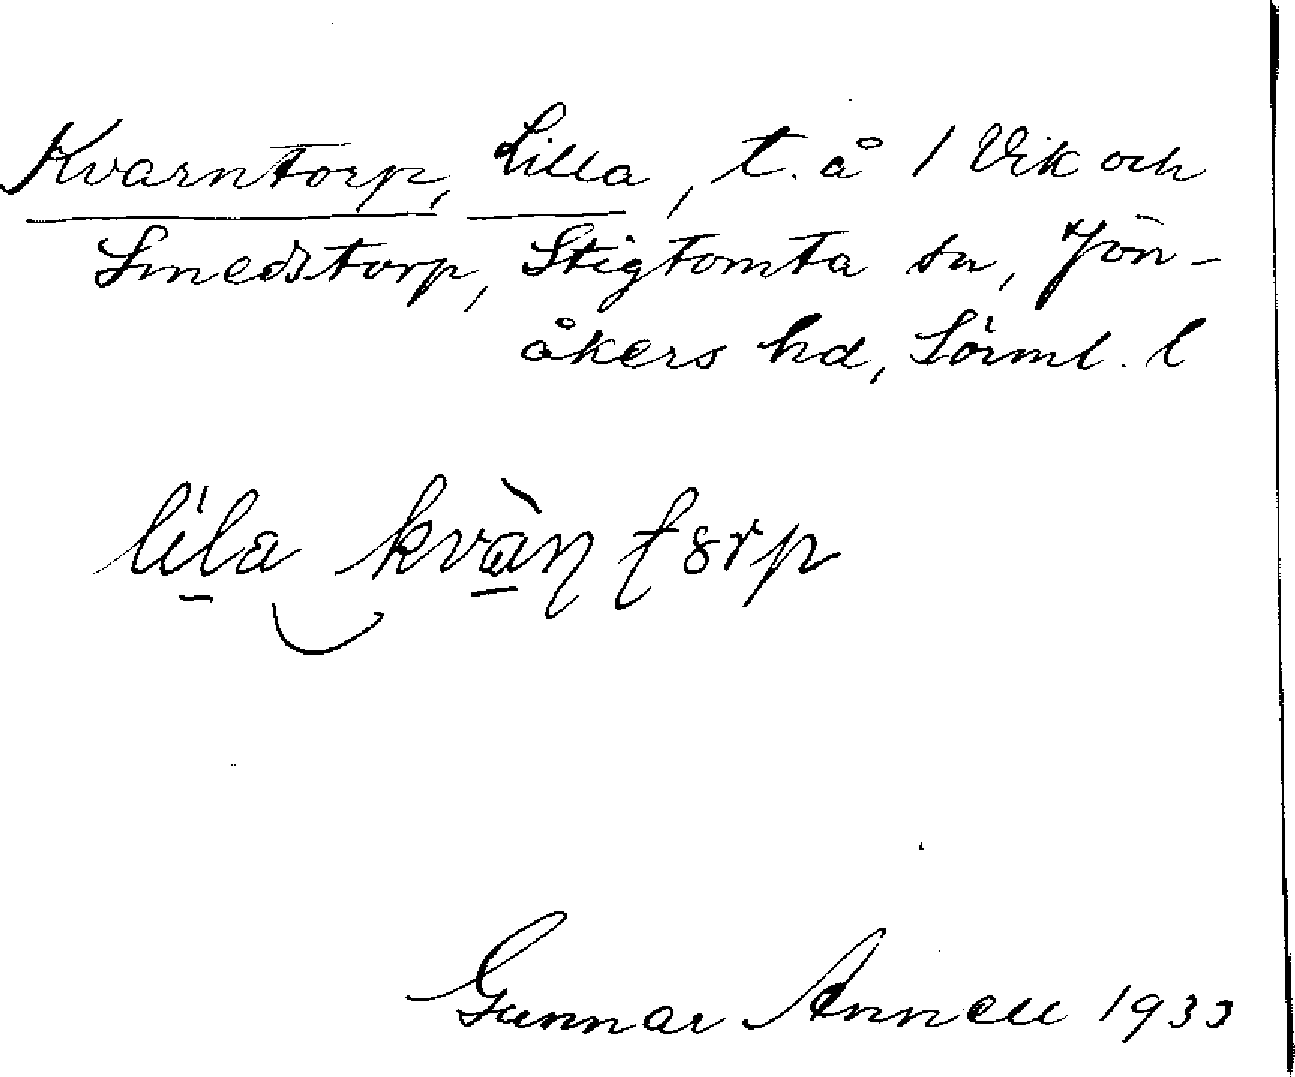 Kvarntorp, Lilla, t. å 1 Vik och
Smedstorp, Stigtomta sn, Jön-
åkers hd, Sörml. l
lila kvàɳ ʈ8rp
Gunnar Annell 1933